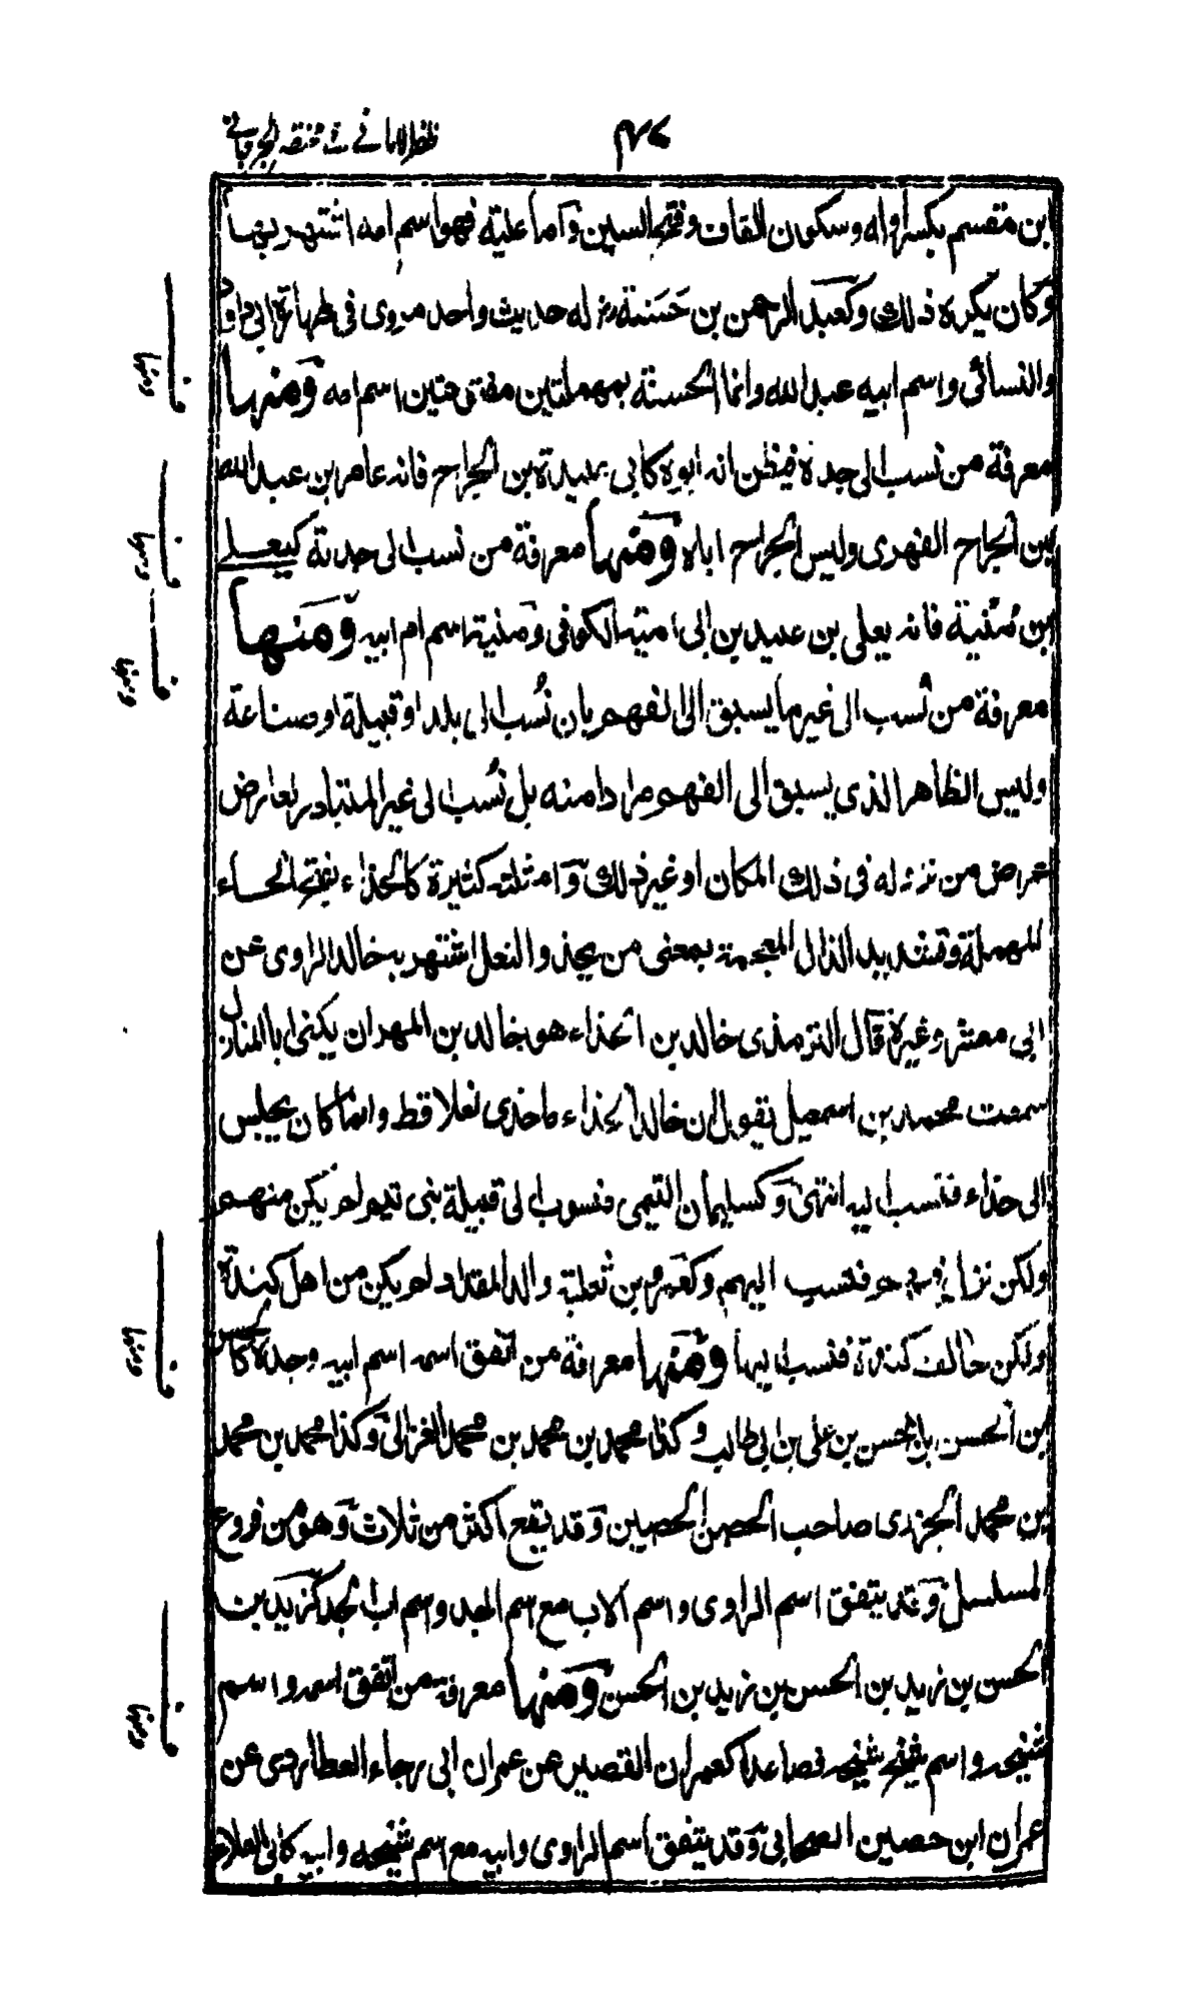 ظفر الامانے شرح مختصر الجرجانے
ابن مقسم بكسر اوله وسكون القاف وفتح السين وآما علية فهو اسم امه اشتهر بها
وكان يكره ذلك وكعبد الرحمن بن حَسَنة له حديث واحد مروى فى طهارة ابى داود
والنسائى واسم ابيه عبد الله وانما الحسنة بمهملتين مفتوحتين اسم امه ومنها
معرفة من نسب الى جده فيظن انه ابوه كابى عبيدة بن الجراح فانه عامر بن عبد الله
بن الجراح الفهرى وليس الجراح اباه ومنها معرفة من نسب الى جدته كيعلى
بن مُنية فانه يعلى بن عبيد بن ابى امية الكوفى ومنية اسم ام ابيه ومنها
معرفة من نُسب الى غير ما يسبق الى الفهم بان نُسب الى بلد او قبيلة او صناعة
وليس الظاهر الذى يسبق الى الفهم مرادا منه بل نُسب الى غير المتبادر لعارض
عرض من نزله فى ذلك المكان او غير ذلك وآمثلته كثيرة كالحذاء بفتح الحاء
المهملة وتشديد الذال المعجمة بمعنى من يحذو النعل اشتهر به خالد الراوى عن
ابى معشر وغيره قال الترمذى خالد بن الحذاء هو خالد بن المهران يكنى ابا المنازل
سمعت محمد بن اسمعيل يقول ان خالد الحذاء ما حذى نعلا قط وانما كان يجلس
الى حذاء فنسب اليه انتهى وكسليمان التيمى منسوب الى قبيلة بنى تيم لم يكن منهم
ولكن نزل فيهم فنسب اليهم وكعمرو بن ثعلبة والد المقداد لم يكن من اهل كندة
ولكن حالف كندة فنسب اليها ومنها معرفة من اتفق اسمه اسم ابيه وجده كالحسن
بن الحسن بن الحسن بن على بن ابى طالب وكذا محمد بن محمد بن محمد الغزالى وكذا محمد بن محمد
بن محمد الجزرى صاحب الحصن الحصين وقد يقع اكثر من ثلاث وهو من فروع
المسلسل وقد يتفق اسم الراوى واسم الاب مع اسم الجد واسم اب الجد كزيد بن
الحسن بن زيد بن الحسن بن زيد بن الحسن ومنها معرفة من اتفق اسمه واسم
شيخه واسم شيخ شيخه فصاعدا كعمران القصير عن عمران ابى رجاء العطاردى عن
عمران ابن حصين الصحابى وقد يتفق اسم الراوى وابيه مع اسم شيخه وابيه كابى العلاء
ومنها
ومنها
ومنها
ومنها
ومنها